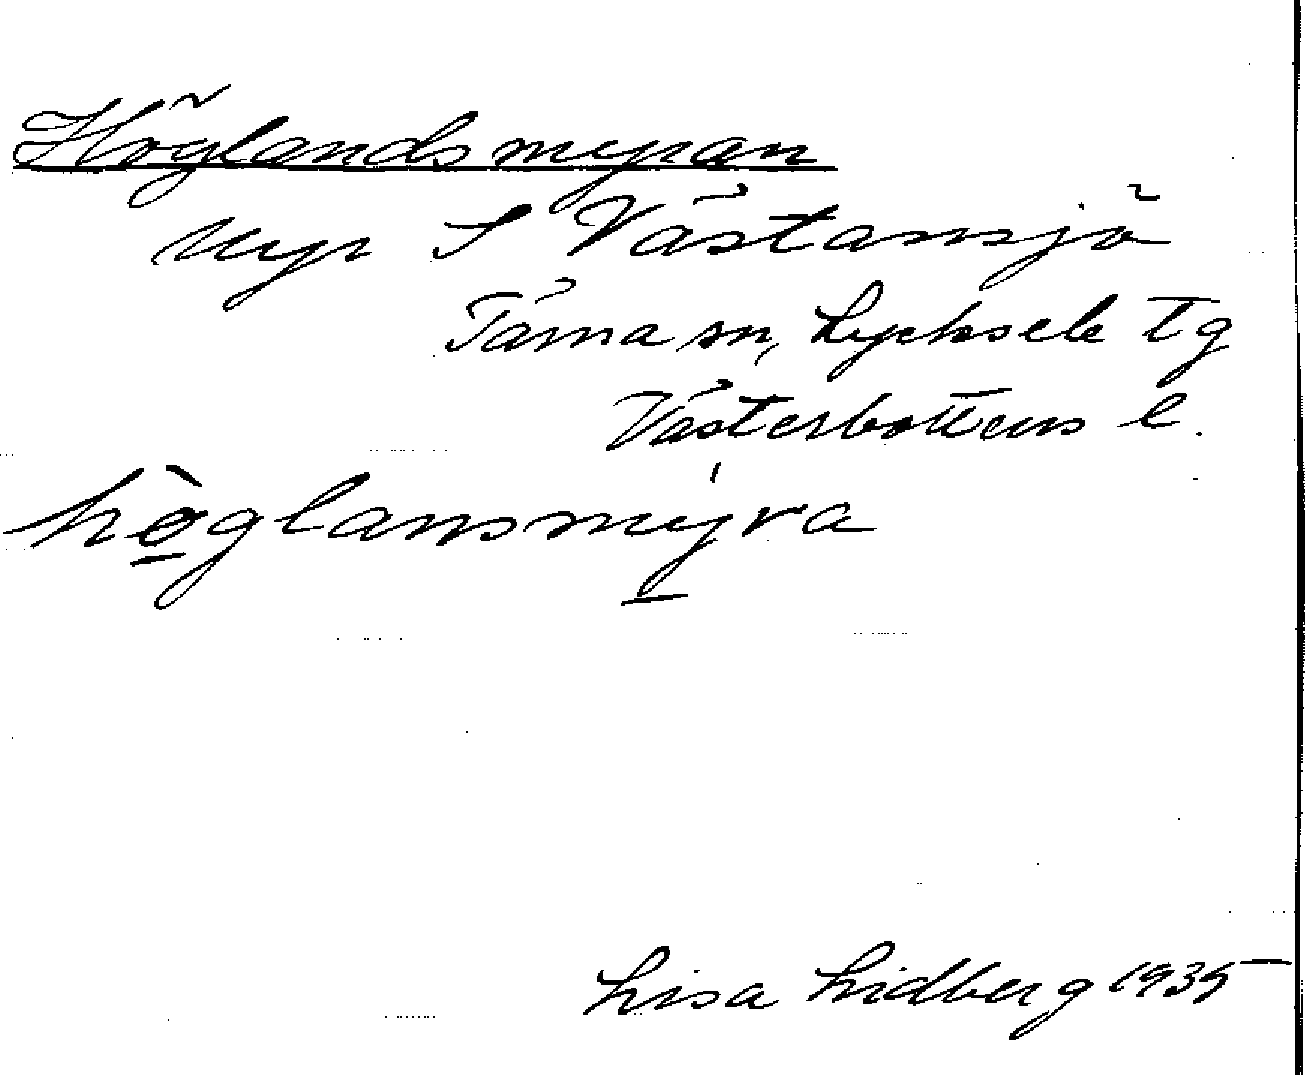 Höglandsmyran
Myr S Västansjö
Tärna sn, Lycksele tg
Västerbottens l.
hö̀glansmýra
Lisa Lidberg 1935